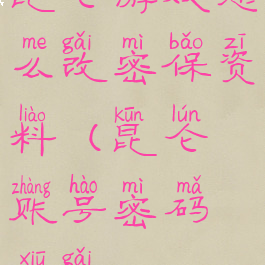 me gǎi mì bǎo zī
么改密保资
liào kūn lún
料（昆仑
zhàng hào mì mǎ
账号密码
xiū gǎi